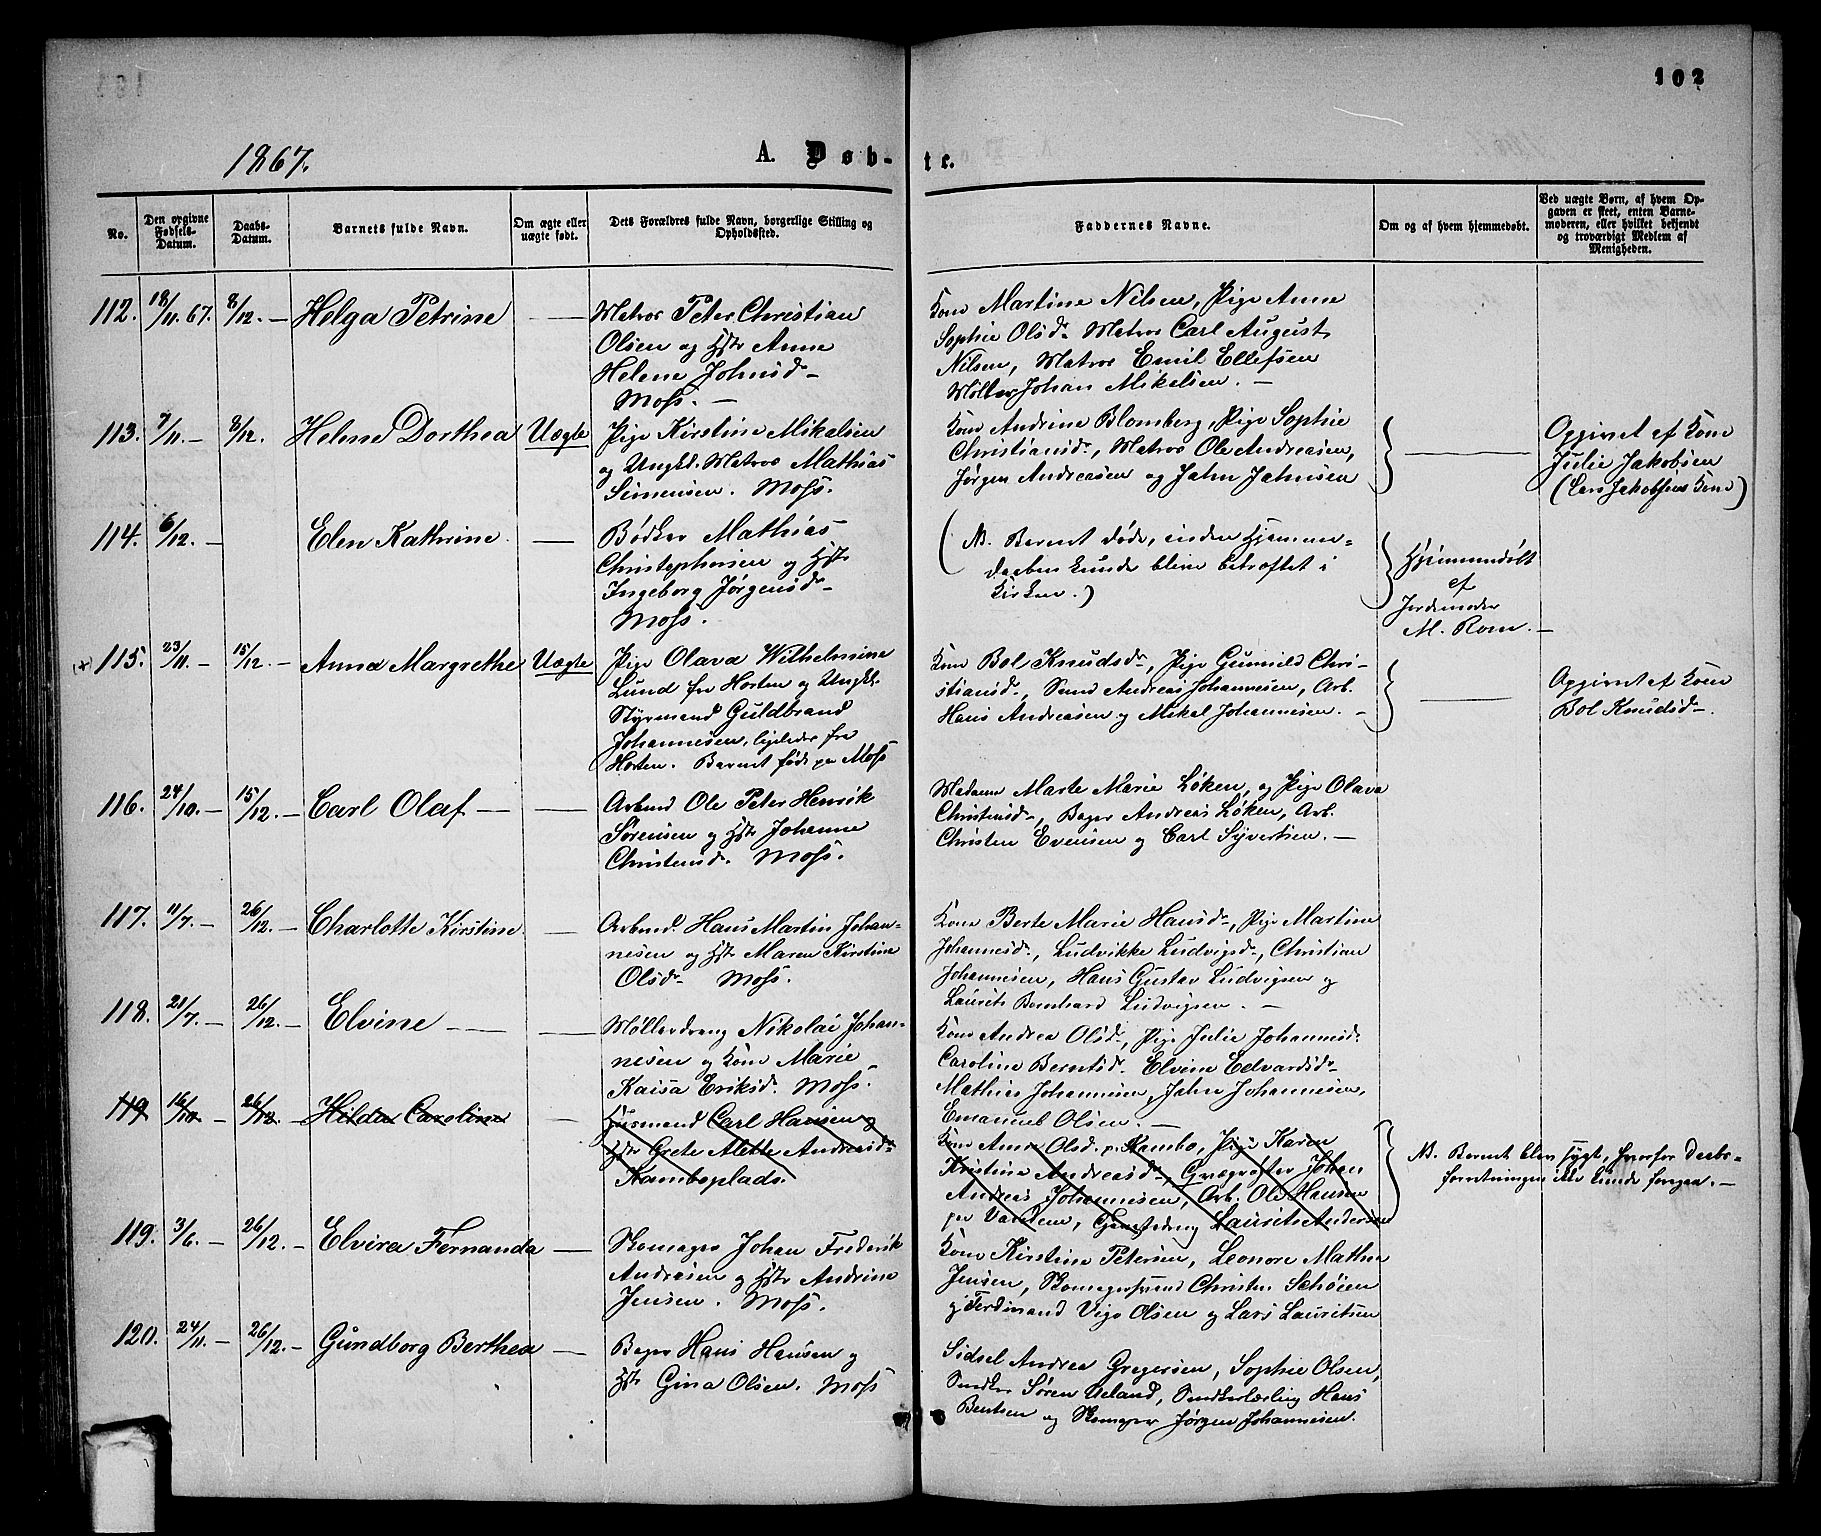 102
1867.
A. Døb-
te.
No.
Den opgivne Fødsels-Datum.
Daabs-Datum.
Barnets fulde Navn.
Om ægte eller uægte født.
Dets Forældres fulde Navn, borgerlige Stilling og Opholdssted.
Faddernes Navne.
Om og af hvem hjemmedøbt.
Ved uægte Børn, af hvem Op-
gaven er skeet, enten Barne-
moderen, eller hvilket bekjendt
og troværdigt Medlem af
Menigheden.
112. 18/11. 67. 8/12. — Helga Petrine —
Matros Peter Christian
Olsen og Hstr Anne
Helene Johnsd.
Moss. —
Kone Martine Nilsen, Pige Anne
Sophie Olsd. Matros Carl August
Nilsen, Matros Emil Ellefsen
Møller Johan Mikelsen. —
113. 7/11. — 8/12. Helene Dorthea Uægte
Pige Kirstine Mikelsen
og Ungkl. Matros Mathias
Simensen. Moss.
Kone Andrine Blomberg, Pige Sophie
Christiansd., Matros Ole Andreasen,
Jørgen Andreasen og Jahn Jahnsen
Opgivet af Kone
Julie Jakobsen
(Lars Jakobsens Kone)
114. 6/12. — Elen Kathrine. —
Bødker Mathias
Christophersen og Hstr
Ingeborg Jørgensd.
Moss.
(NB. Barnet døde, inden Hjemme-
daaben kunde blive bekræftet i
Kirken.)
Hjemmedøbt
af
Jordemoder
M. Rom. —
(+) 115. 23/11. — 15/12. — Anna Margrethe Uægte
Pige Olava Wilhelmine
Lund fra Horten og Ungkl.
Styrmand Guldbrand
Johannesen, ligeledes fra
Horten. Barnet født paa Moss
Kone Bol Knudsd., Pige Gunild Chri-
stiansd., Smed Andreas Johannesen, Arb.
Hans Andreasen og Mikal Johannesen. —
Opgivet af Kone
Bol Knudsd.
116. 24/10. — 15/12. — Carl Olaf — —
Arbmd Ole Peter Henrik
Sørensen og Hstr Johanne
Christensd. Moss.
Madame Marte Marie Løken, og Pige Olava
Christensd., Bager Andreas Løken, Arb.
Christen Evensen og Carl Syvertsen. —
117. 11/7. — 26/12. — Charlotte Kirstine. —
Arbmd. Hans Martin Johan-
nesen og Hstr Maren Kirstine
Olsd. Moss.
Kone Berte Marie Hansd., Pige Martine
Johannesd., Ludvikke Ludvigsd., Christian
Johannesen, Hans Gustav Ludvigsen og
Laurits Bernhard Ludvigsen. —
118. 21/7. — 26/12. — Elvine — —
Møllerdreng Nikolai Johan-
nesen og Kone Marie
Kaisa Eriksd. Moss.
Kone Andrea Olsd., Pige Julie Johannesd.
Caroline Berntsd. Elvine Edvardsd.
Mathias Johannesen, Jahn Johannesen,
Emanuel Olsen. —
119 16/10. 26/12. Hilda Caroline —
Husmand Carl Hansen og
Hstr Grete Alette Andreasd.
Kamboplads.
Kone Anne Olsd. p. Kambo, Pige Karen
Kristine Andreasd., Grøgrøfter Johan
Andreas Johannesen, Arb. Ole Hansen
paa Vardem, Laurits Andersen
NB. Barnet blev sygt, hvorfor Daabs-
forretningen ikke kunde foregaa. —
119. 3/6. — 26/12. — Elvira Fernanda —
Skomager Johan Frederik
Andresen og Hstr Andrine
Jensen. Moss.
Kone Kirstine Petersen, Leonore Mathea
Jensen, Skomagersvend Christen Schøien
og Ferdinand Vigo Olsen og Lars Lauritsen
120. 24/11. — 26/12. — Gundborg Berthea —
Bager Hans Hansen og
Hstr Gina Olsen. Moss
Sidsel Andrea Gregersen, Sophie Olsen,
Snedker Søren Ueland, Snedkerlærling Hans
Bentsen og Skomager Jørgen Johannesen.